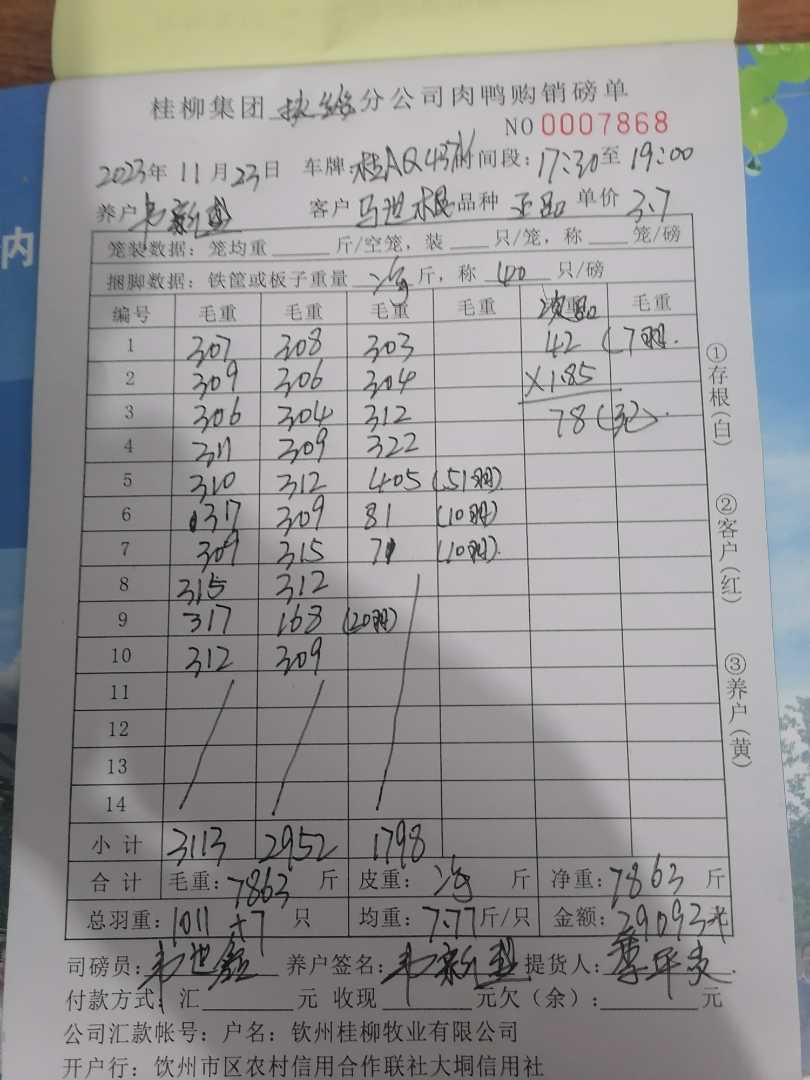 桂柳集团 分公司肉鸭购销磅单
NO 0007868
2023年 11月23日 车牌:桂AQ 时间段:17:30至19:00
养户 韦新 客户 马世 品种 正品 单价 3.7
笼装数据:笼均重 斤/空笼,装 只/笼,称 笼/磅
捆脚数据:铁筐或板子重量 净 斤,称 40 只/磅
编号 毛重 毛重 毛重 毛重 次品 毛重
1 307 308 303 42 (7羽.
2 309 306 304 ×1.85
3 306 304 312 78(元).
4 311 309 322
5 310 312 405 (51羽)
6 317 309 81 (10羽)
7 309 315 71 (10羽).
8 315 312
9 317 168 (20羽)
10 312 309
11
12
13
14
小计 3113 2952 1798
合计 毛重:7863 斤 皮重:净 斤 净重:7863 斤
总羽重:1011+7 只 均重:7.77斤/只 金额:29093元
司磅员:韦世 养户签名:韦新 提货人:
付款方式:汇 元 收现 元欠(余): 元
公司汇款帐号:户名:钦州桂柳牧业有限公司
开户行:钦州市区农村信用合作联社大垌信用社
①存根(白)
②客户(红)
③养户(黄)
内